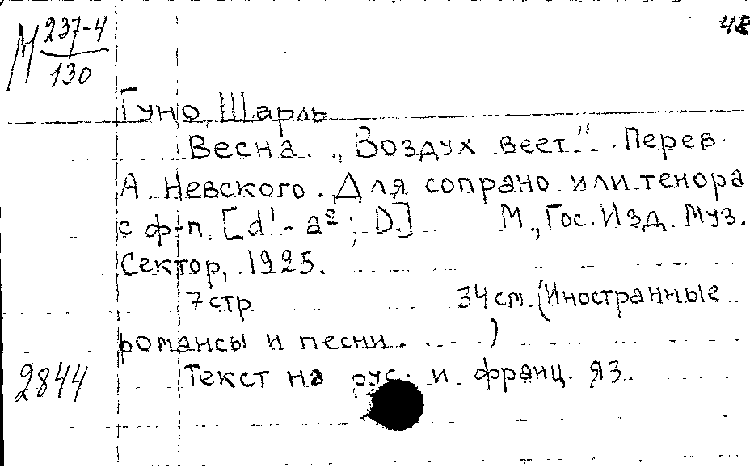 М 237-4
130
Гуно, Шарль
Весна. „Воздух веет." Перев.
А. Невского. Для сопрано или тенора
с ф-п. [d¹-a²; D.] М., Гос. Изд. Муз.
Сектор, 1925.
7 стр 34 см. (Иностранные
романсы и песни. )
2844
Текст на рус. и франц. яз.